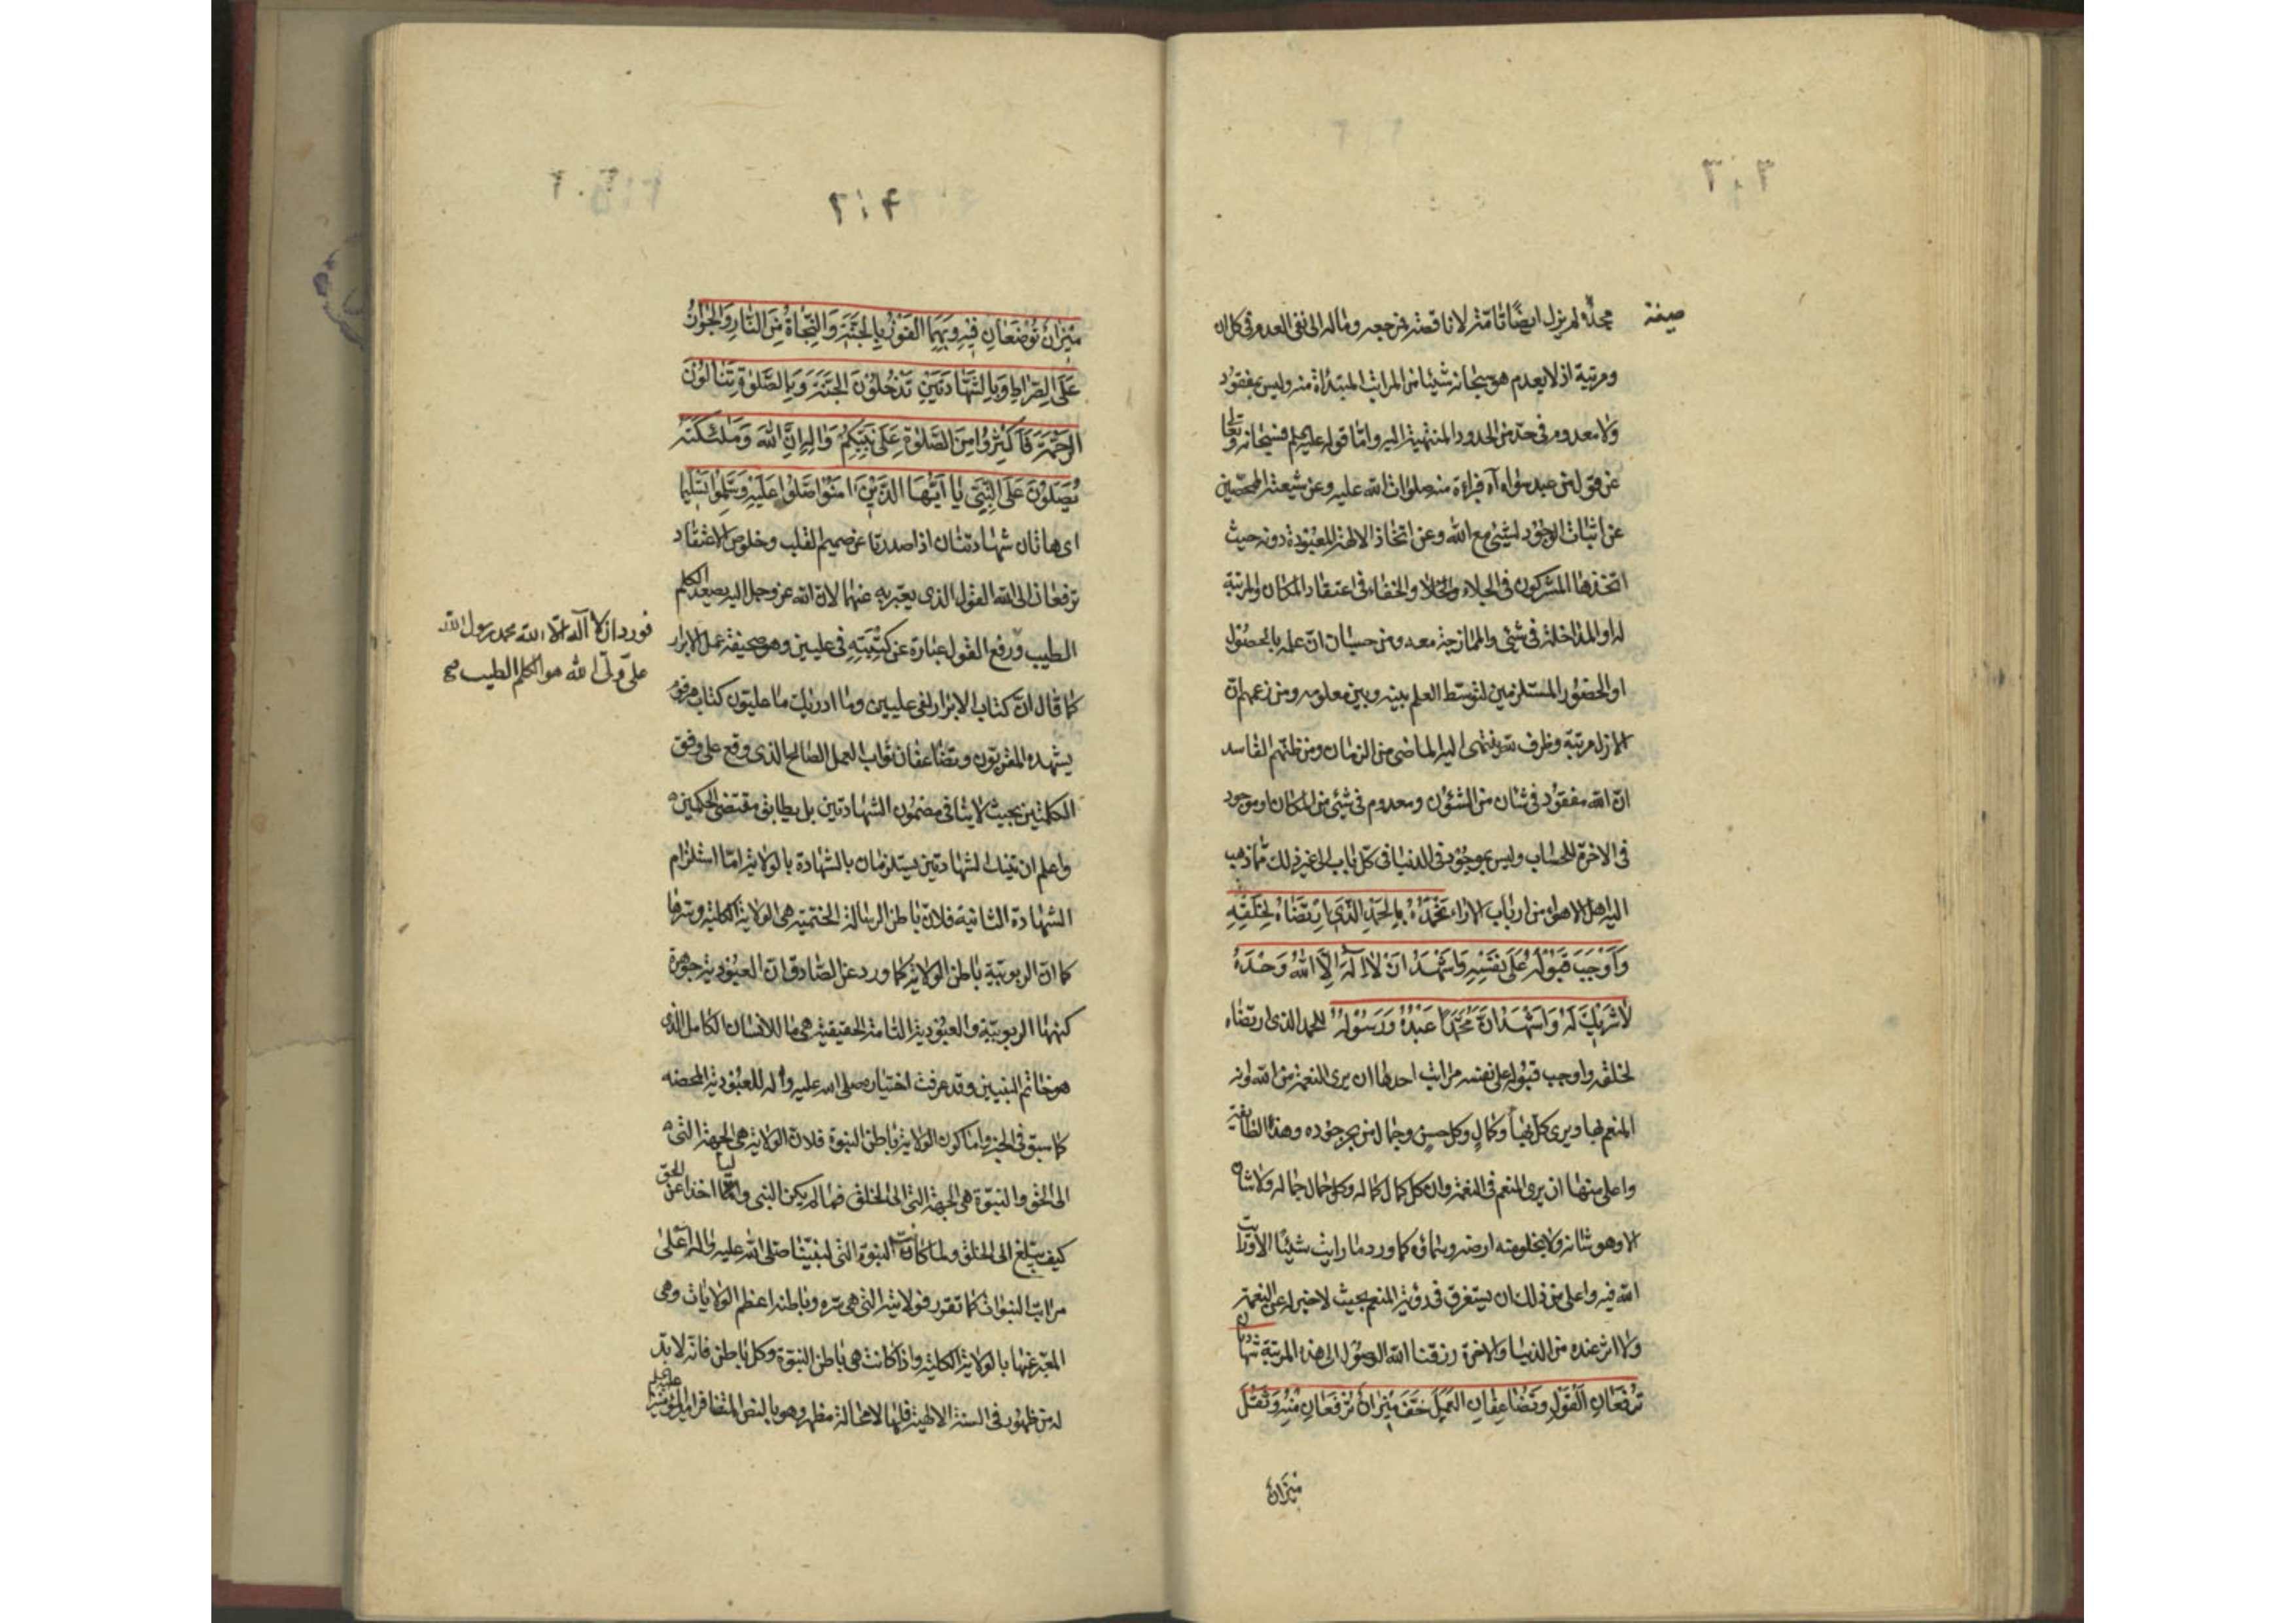 ٣٠٣
صيغة مجدّدة لم يزل ايضًا تامّة لا ناقصة فمرجعه وماله الى نفى العدم فى كل ان
ومرتبة اذ لا يعدم هو سبحانه شيئا من المراتب المبتدأة منه وليس بمفقود
ولا معدوم فى حدّ من الحدود المنتهية اليه وامّا قوله عليه فسبحانه وتعالى
عن قول من عبد سواه آه فبراءة منه صلوات الله عليه وعن شيعته المخلصين
عن اثبات الوجود لشئ مع الله وعن اتخاذ الالهة المعبودة دونه حيث
اتخذها المشركون فى الجلاء والخلاء والخفاء فى اعتقاد المكان والمرتبة
له او المداخلة فى شئ والممازجة معه ومن حسبان انّ علمه بالحصول
او الحضور المستلزمين لتوسّط العلم بينه وبين معلومه ومن زعمهم انّ
الازل مرتبة وظرف ينتهى اليه الماضى من الزمان ومن ظنّهم الفاسد
انّ الله مفقود فى شان من الشئون ومعدوم فى شئ من المكان او موجود
فى الاخرة للحساب وليس بموجود فى الدنيا فى كلّ باب الى غير ذلك ممّا ذهب
اليه اهل الاهواء من ارباب الاراء نَحْمَدُهُ بِالْحَمْدِ الَّذِي ارْتَضَاهُ لِخَلْقِهِ
وَاَوْجَبَ قَبُولَهُ عَلَى نَفْسِهِ وَاَشْهَدُ اَنْ لَا اِلَهَ اِلَّا اللهُ وَحْدَهُ
لَا شَرِيكَ لَهُ وَاَشْهَدُ اَنَّ مُحَمَّدًا عَبْدُهُ وَرَسُولُهُ للحمد الذى ارتضاه
لخلقه واوجب قبوله على نفسه مراتب احدها ان يرى النعمة من الله وانه
المنعم بها ويرى كل بهاء وكمال وكل حسن وجمال من بحر جوده وهذا لطائفة
واعلى منها ان يرى المنعم فى النعمة وان كل كمال كماله وكل جمال جماله ولا شان
الا وهو شانه ولا يخلو منه ارضه وسماؤه كما ورد ما رايت شيئًا الا ورايت
الله فيه واعلى من ذلك ان يستغرق فى رؤية المنعم بحيث لا خبر له عن النعمة
ولا اثر عنده من الدنيا والاخرة رزقنا الله الوصول الى هذه المرتبة شهادتان
تَرْفَعَانِ الْقَوْلَ وَتُضَاعِفَانِ الْعَمَلَ خَفَّ مِيزَانٌ تُرْفَعَانِ مِنْهُ وَثَقُلَ
مِيزَانٌ
٣٠٤
مِيزَانٌ تُوضَعَانِ فِيهِ وَبِهِمَا الْفَوْزُ بِالْجَنَّةِ وَالنَّجَاةُ مِنَ النَّارِ وَالْجَوَازُ
عَلَى الصِّرَاطِ وَبِالشَّهَادَتَيْنِ تَدْخُلُونَ الْجَنَّةَ وَبِالصَّلَوةِ تَنَالُونَ
الرَّحْمَةَ فَاَكْثِرُوا مِنَ الصَّلَوةِ عَلَى نَبِيِّكُمْ وَآلِهِ اِنَّ اللهَ وَمَلَئِكَتَهُ
يُصَلُّونَ عَلَى النَّبِيِّ يَا اَيُّهَا الَّذِينَ آمَنُوا صَلُّوا عَلَيْهِ وَسَلِّمُوا تَسْلِيمًا
اى هاتان شهادتان اذا صدرتا عن صميم القلب وخلوص الاعتقاد
ترفعان الى الله القول الذى يعبّر به عنهما لانّ الله عز وجل اليه يصعد الكلم
الطيب ورفع القول عبارة عن كَتْبَتِه فى عليين وهو صحيفة عمل الابرار
كما قال انّ كتاب الابرار لفى عليين وما ادريك ما عليّون كتاب مرقوم
يشهده المقرّبون وتضاعفان ثواب العمل الصالح الذى وقع على وفق
الكلمتين بحيث لا ينافى مضمون الشهادتين بل يطابق مقتضى الحكمين
واعلم ان تينك الشهادتين يستلزمان بالشهادة بالولاية امّا استلزام
الشهادة الثانية فلانّ باطن الرسالة الختميّة هى الولاية الكلية وسرّها
كما انّ الربوبيّة باطن الولاية كما ورد عن الصّادق انّ العبوديّة جوهرة
كنهها الربوبيّة والعبوديّة التامة الحقيقية هى ما للانسان الكامل الذى
هو خاتم النبيين وقد عرفت اختياره صلى الله عليه وآله للعبوديّة المحضه
كما سبق فى الخبر وامّا كون الولاية باطن النبوة فلانّ الولاية هى الجهة التى
الى الحق والنبوّة هى الجهة التى الى الخلق فما لم يكن النبى وليّا اخذا عن الحق
كيف يبلّغ الى الخلق ولما كانت النبوّة التى لنبيّنا صلّى الله عليه وآله اعلى
مراتب النبوات كما تقرّر فولايته التى هى سرّه وباطنه اعظم الولايات وهى
المعبّر عنها بالولاية الكلية واذ كانت هى باطن النبوّة وكل باطن فانّه لا بدّ
له من ظهور فى السنة الالهية فلها لا محالة مظهر وهو بالنص المتضافر امير المؤمنين
فورد ان لا آله الّا الله محمد رسول الله
علىّ ولىّ الله هو الكلم الطيب صح